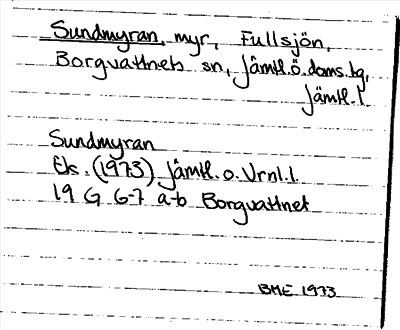 Sundmyran, myr, Fullsjön,
Borgvattnets sn, Jämtl.ö.doms.bg,
Jämtl.l.
Sundmyran
Ek. (1973) Jämtl. o. Vrnl.l.
19 G 6-7 a-b Borgvattnet
BME 1973